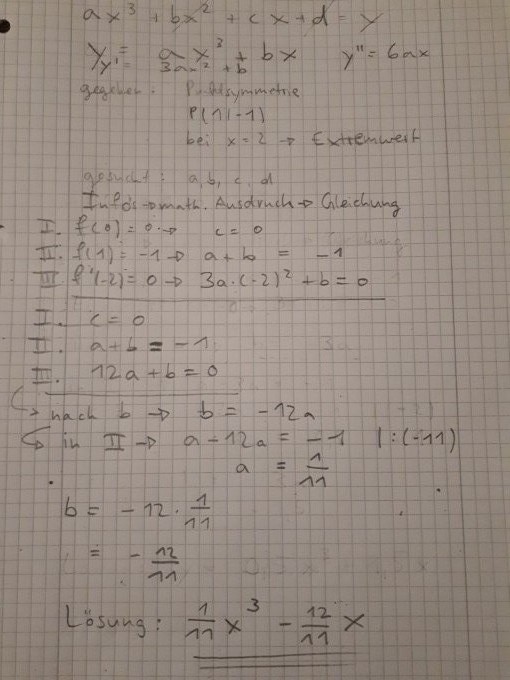 ax³ + bx² + cx + d = y
y = ax³ + bx y'' = 6ax
y' = 3ax² + b
gegeben: Punktsymmetrie
P(1|-1)
bei x = 2 → Extremwert
gesucht: a, b, c, d
Info's → math. Ausdruck → Gleichung
I. f(0) = 0 → c = 0
II. f(1) = -1 → a + b = -1
III f'(-2) = 0 → 3a·(-2)² + b = 0
I. c = 0
II. a + b = -1
III. 12a + b = 0
↳ nach b → b = -12a
↳ in II → a - 12a = -1 |:(-11)
a = 1/11
b = -12 · 1/11
= - 12/11
Lösung: 1/11 x³ - 12/11 x